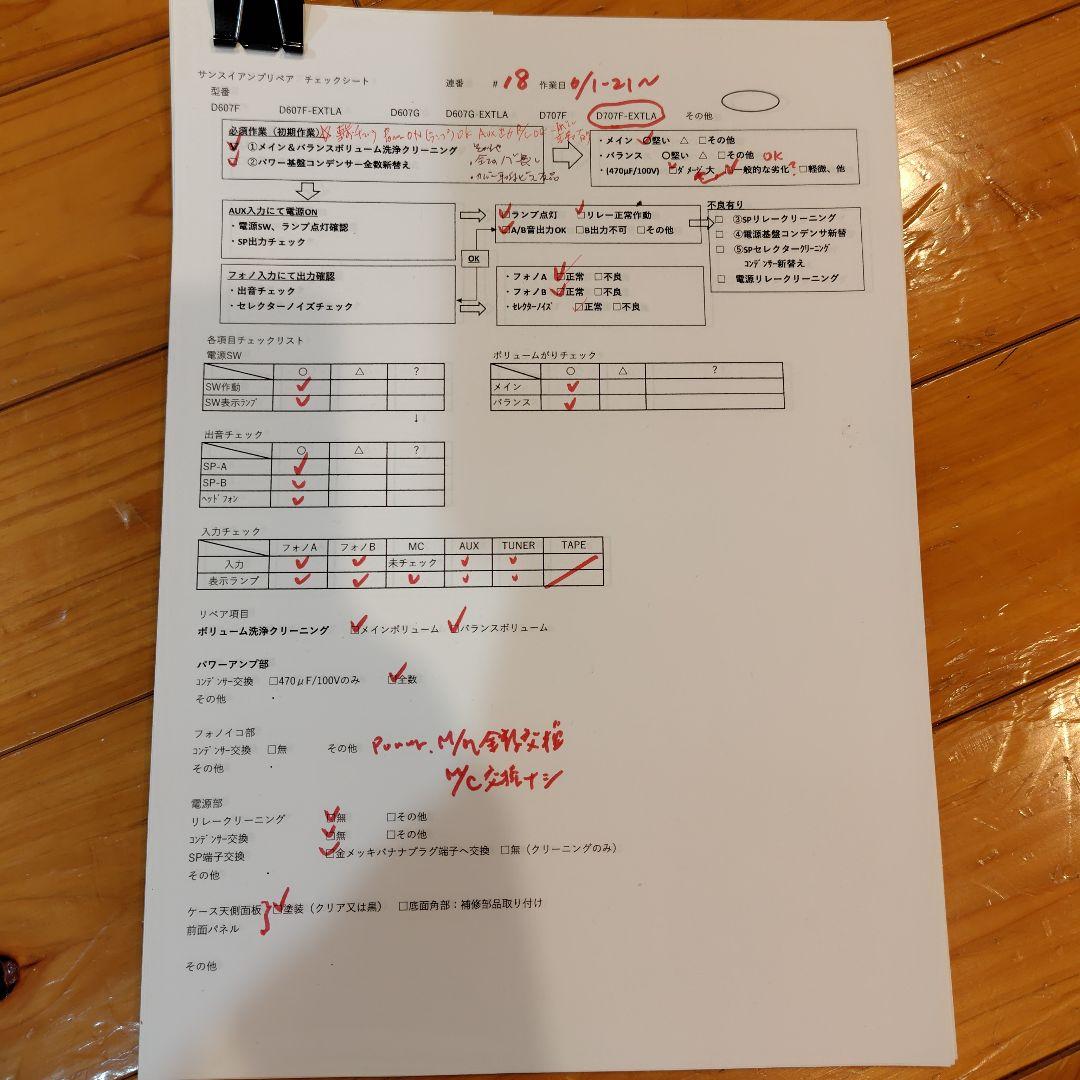 サンスイアンプリペア チェックシート 連番 # 18 作業日
型番
D607F D607F-EXTLA D607G D607G-EXTLA D707F D707F-EXTLA その他
必須作業（初期作業）
①メイン＆バランスボリューム洗浄クリーニング
②パワー基盤コンデンサー全数新替え
・メイン 〇堅い △ □その他
・バランス 〇堅い △ □その他 OK
・(470μF/100V) □ダメージ大 □一般的な劣化? □軽微、他
AUX入力にて電源ON
・電源SW、ランプ点灯確認
・SP出力チェック
□ランプ点灯 □リレー正常作動
□A/B音出力OK □B出力不可 □その他
不良有り
□ ③SPリレークリーニング
□ ④電源基盤コンデンサ新替
□ ⑤SPセレクタークリーニング
コンデンサー新替え
□ 電源リレークリーニング
OK
フォノ入力にて出力確認
・出音チェック
・セレクターノイズチェック
・フォノA □正常 □不良
・フォノB □正常 □不良
・セレクタノイズ □正常 □不良
各項目チェックリスト
電源SW
〇 △ ?
SW作動
SW表示ランプ
↓
ボリュームがりチェック
〇 △ ?
メイン
バランス
出音チェック
〇 △ ?
SP-A
SP-B
ヘッドフォン
入力チェック
フォノA フォノB MC AUX TUNER TAPE
入力 未チェック
表示ランプ
リペア項目
ボリューム洗浄クリーニング □メインボリューム □バランスボリューム
パワーアンプ部
コンデンサー交換 □470μF/100Vのみ □全数
その他 ・
フォノイコ部
コンデンサー交換 □無 その他 Power、M/M全数交換
その他 ・ M/C交換ナシ
電源部
リレークリーニング □無 □その他
コンデンサー交換 □無 □その他
SP端子交換 □金メッキバナナプラグ端子へ交換 □無（クリーニングのみ）
その他 ・
ケース天側面板 □塗装（クリア又は黒） □底面角部：補修部品取り付け
前面パネル
その他